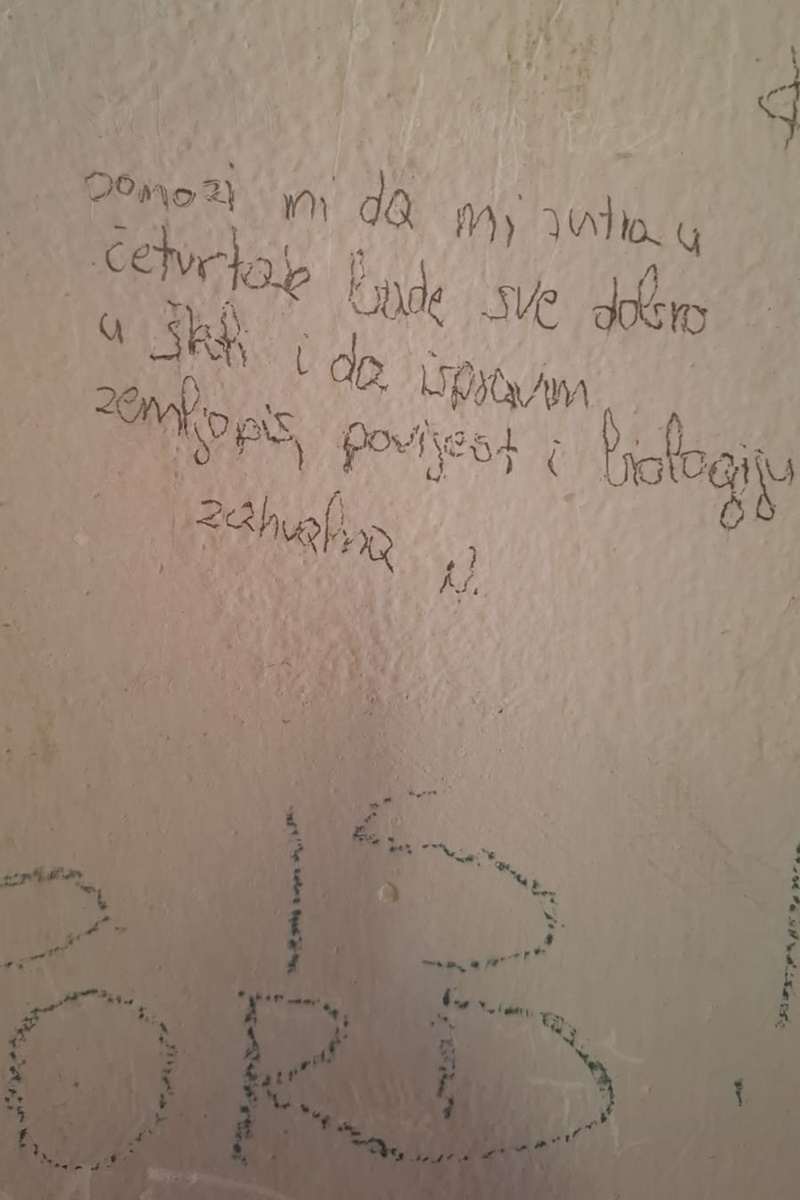 Pomozi mi da mi sutra u
četvrtak bude sve dobro
u školi i da ispravim
zemljopis, povijest i biologiju
zahvalna N.
IS
ORD